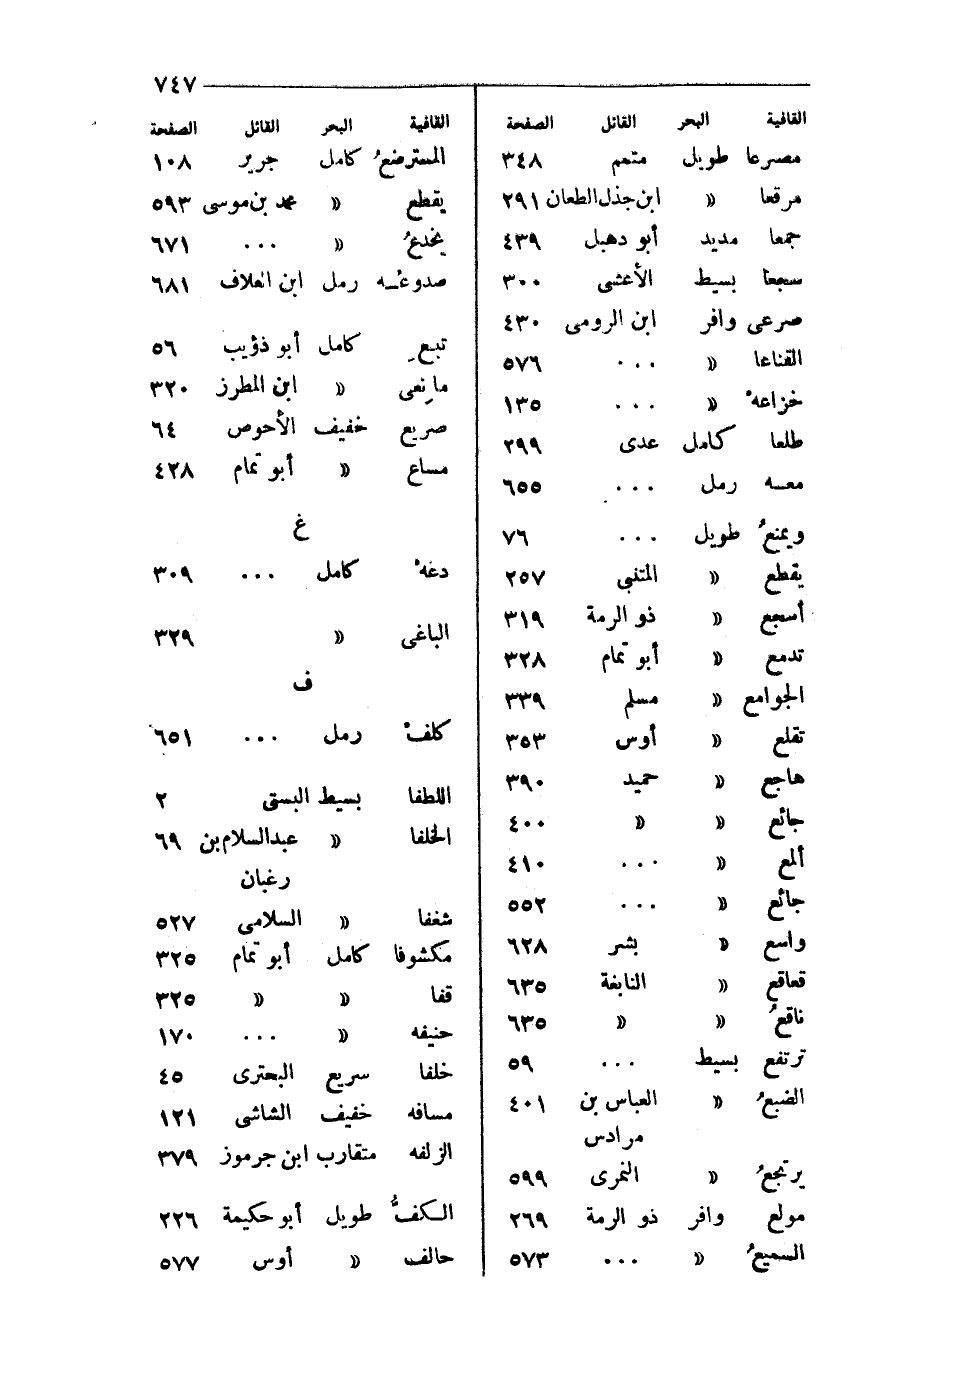 ٧٤٧
القافية البحر القائل الصفحة
مصرعا طويل متمم ٣٤٨
مرقعا « ابن جذل الطعان ٢٩١
جمعا مديد أبو دهبل ٤٣٩
سجعا بسيط الأعشى ٣٠٠
صرعى وافر ابن الرومى ٤٣٠
القناعا « ... ٥٧٦
خزاعهْ « ... ١٣٥
طلعا كامل عدى ٢٩٩
معـه رمل ... ٦٥٥
ويمنعُ طويل ... ٧٦
يقطع « المتنبى ٢٥٧
أسجع « ذو الرمة ٣١٩
تدمع « أبو تمام ٣٢٨
الجوامع « مسلم ٣٣٩
تقلع « أوس ٣٥٣
هاجع « حميد ٣٩٠
جائع « « ٤٠٠
ألمع « ... ٤١٠
جائع « ... ٥٥٢
واسع « بشر ٦٢٨
قعاقع « النابغة ٦٣٥
ناقعُ « « ٦٣٥
ترتفع بسيط ... ٥٩
الضبعُ « العباس بن ٤٠١
مرادس
يرتجعُ « النمرى ٥٩٩
مولع وافر ذو الرمة ٢٦٩
السميعُ « ... ٥٧٣
القافية البحر القائل الصفحة
المسترضعُ كامل جرير ١٠٨
يقطع « محمد بن موسى ٥٩٣
يخدعُ « ... ٦٧١
صدوعُـه رمل ابن العلاف ٦٨١
تبعِ كامل أبو ذؤيب ٥٦
مانعِى « ابن المطرز ٣٢٠
صريع خفيف الأحوص ٦٤
مساع « أبو تمام ٤٢٨
غ
دغهْ كامل ... ٣٠٩
الباغى « ٣٢٩
ف
كلفْ رمل ... ٦٥١
اللطفا بسيط البستى ٢
الخلفا « عبدالسلام بن ٦٩
رغبان
شغفا « السلامى ٥٢٧
مكشوفا كامل أبو تمام ٣٢٥
قفا « « ٣٢٥
حنيفه « ... ١٧٠
خلفا سريع البحترى ٤٥
مسافه خفيف الشاشى ١٢١
الزلفه متقارب ابن جرموز ٣٧٩
الـكفُّ طويل أبو حكيمة ٢٢٦
حالف « أوس ٥٧٧